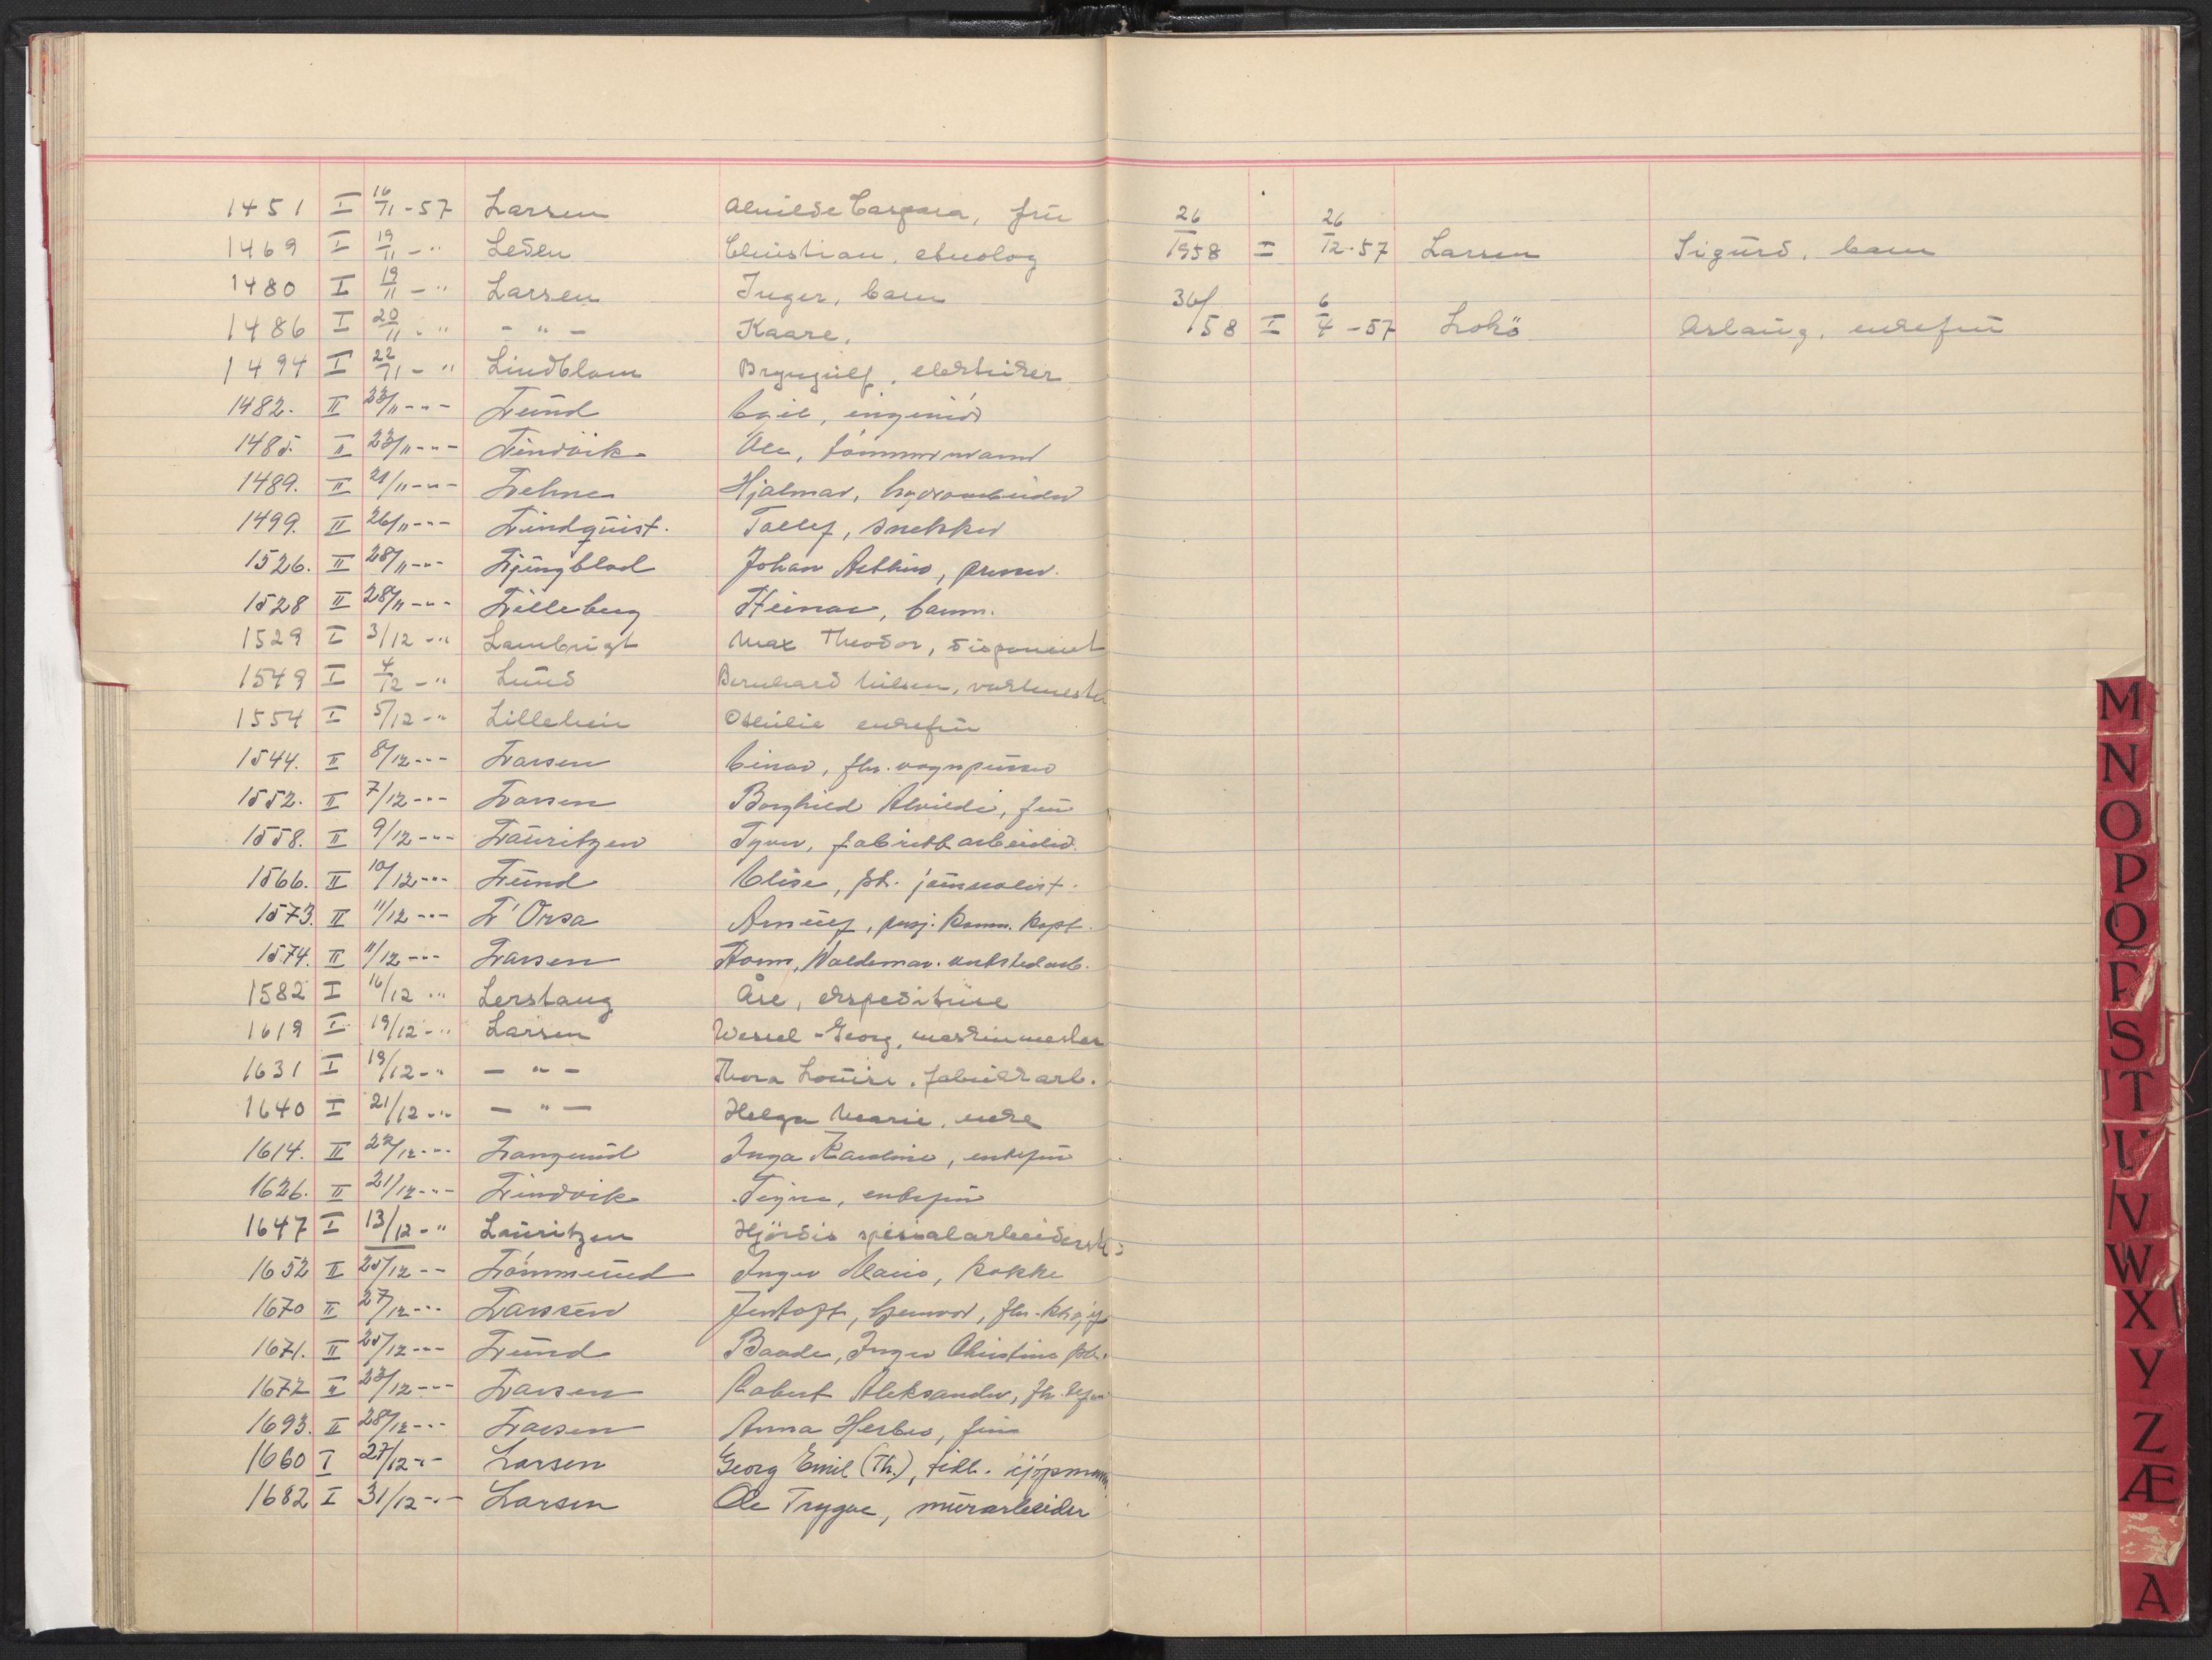 1451 I 16/11-57 Larsen Alvilde Caspara, frü
1469 I 19/11 - " Leden Christian, etnolog
1480 I 19/11 - " Larsen Inger, barn
1486 I 20/11 - " - " - Kaare,
1494 I 22/11 - " Lindblom Bryngülf, elektriker
1482. II 23/11 - " - Lünd Egil, ingeniör
1485. II 23/11 - " - Lindvik Ole, tømmermand
1489. II 21/11 - " - Lehne Hjalmar,
1499. II 26/11 - " - Lindqüist. Tollef, snekker
1526. II 28/11 - " - Ljüngblad Johan Arthur, pens.
1528 II 28/11 - " - Lilleberg Steinar, barn.
1529 I 3/12 - " Lambrigt Max Theodor, disponent
1549 I 4/12 - " Lünd Bernhard Nilsen, verkmester
1554 I 5/12 - " Lillehein Othilie enkefrü
1544. II 8/12 - " - Larsen Einar, fhv. vognpüsser
1552. II 7/12 - " - Larsen Borghild Alvilde, frü
1558. II 9/12 - " - Laüritzen fabrikkarbeider.
1566. II 10/12 - " - Lünd Elise, joürnalist.
1573. II 11/12 - " - L'Orsa Arnülf, pensj. kapt.
1574. II 11/12 - " - Larsen Waldemar. verkstedarb.
1582 I 16/12 " Lerstang Åse, ekspeditrise
1619 I 19/12 - " Larsen Wessel-Georg, maskinmester
1631 I 19/12 - " - " - Thora Loüise, fabrikkarb.
1640 I 21/12 - " - " - Helga Marie, enke
1614. II 22/12 - " - Langürd Inga Karoline, enkefrü
1626. II 21/12 - " - Lindvik Signe, enkefrü
1647 I 13/12 - " Laüritzen Hjördis spesialarbeiderske
1652 II 25/12 - - Lømmerud Inger Marie, kokke
1670 II 27/12 - " - Larssen Jentoft, fhv.
1671. II 25/12 - " - Lünd Baade, Inger Christine
1672 II 23/12 - " - Larsen Robert Aleksander, fh.
1693. II 28/12 - " - Larsen Anna frü
1660 I 27/12 - " - Larsen Georg Emil (Th.), fedl. kjöpmann
1682 I 31/12 - " - Larsen Ole Trygve, mürarbeider
26/1958 I 26/12-57 Larsen Sigürd, barn
36/58 I 6/4-57 Lokö Aslaüg, enkefrü
M
N
O
P
Q
R
S
T
U
V
W
X
Y
Z
Æ
A